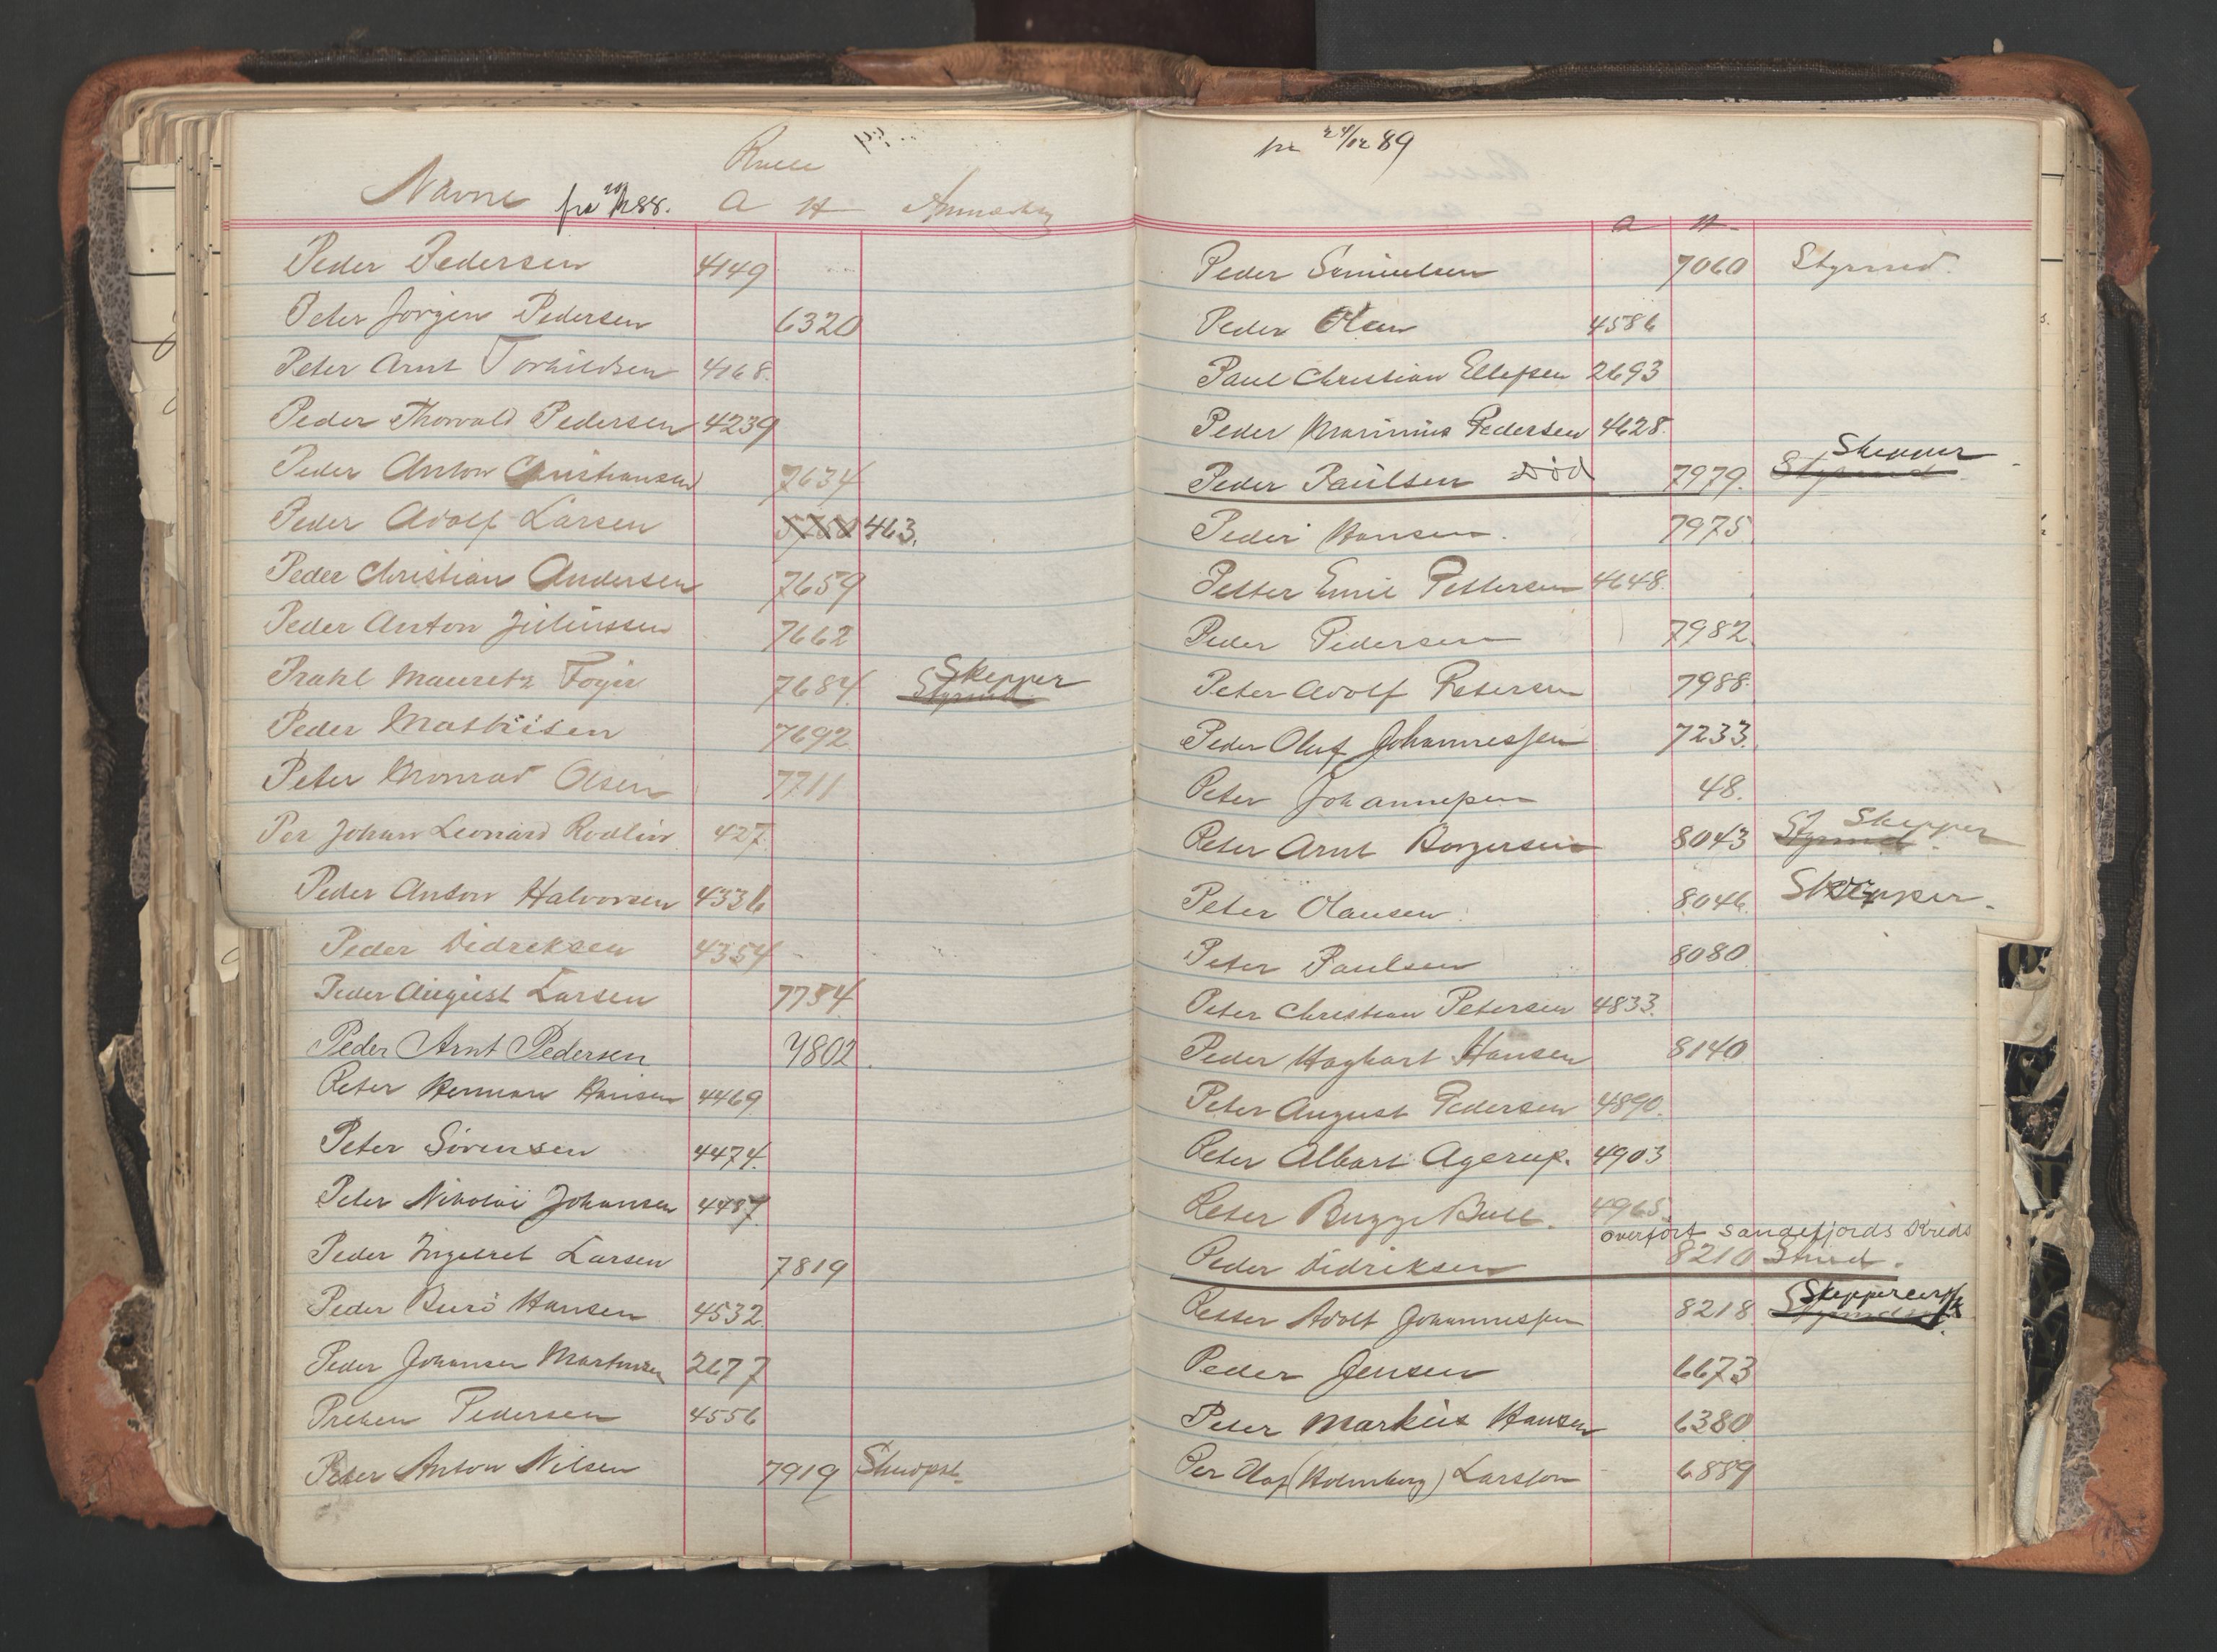 Rulle
Navne fra 88. a H Anmærkn
Peder Pedersen 4149
Peter Jørgen Pedersen 6320
Peter Arnt Torkildsen 4168.
Peder Thorvald Pedersen 4239
Peder Anton Christiansen 7634
Peder Adolf Larsen 5750 463.
Peder Christian Andersen 7659
Peder Anton Juliussen 7662
Skepper
Prahl Mauretz Foyn 7684. Styrmd.
Peder Mathisen 7692
Peter Monrad Olsen 7711
Per Johan Leonard Rodlin 427
Peder Anton Halvorsen 4336
Peder Didreksen 4354
Peder August Larsen 7754
Peder Arnt Pedersen 7802.
Peter Herman Hansen 4469
Peter Sörensen 4474.
Peter Nikolai Johansen 4487
Peder Ingebret Larsen 7819
Peder Buró Hansen 4532.
Peder Johansen Martinsen 2677
Preben Pedersen 4556
Peter Anton Nilsen 7919
fra 24/12 89
a H
Peder Samuelsen 7060 Styrmd.
Peder Olsen 4586
Paul Christian Ellefsen 2693
Peder Marinius Pedersen 4628.
Skepper
Peder Paulsen död 7979. Styrmd.
Peder Hansen. 7975
Petter Emil Pettersen 4648.
Peder Pedersen 7982.
Peter Adolf Petersen 7988.
Peder Oluf Johannessen 7233.
Peter Johannessen 48.
Skepper
Peter Arnt Borgersen 8043 Styrmd.
Peter Olausen 8046. Skepper.
Peter Paulsen 8080
Peter Christian Petersen 4833.
Peder Hagbart Hansen 8140
Peter August Pedersen 4890.
Peter Albart Agerup. 4903
Peter Bugge Bull. 4965.
overfört Sandefjords Kreds
Peder Didriksen 8210 Stmd.
Skeppercerfk
Petter Adolf Johannessen 8218
Peder Jensen 6673
Peter Markus Hansen 6380
Per Olaf (Holmberg) Larsson 6889